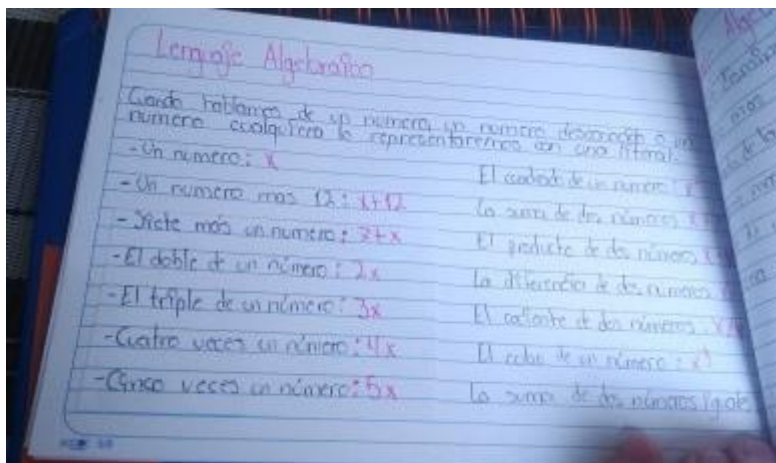 Lenguaje Algebraico
Cuando hablamos de un numero, un numero desconocido o un
numero cualquiera lo representaremos con una literal.
- Un numero: x
- Un numero mas 12: x+12
- Siete más un numero: 7+x
- El doble de un número: 2x
- El triple de un número: 3x
- Cuatro veces un número: 4x
- Cinco veces un número: 5x
El cuadrado de un número:
La suma de dos números
El producto de dos números
La diferencia de dos numeros
El cociente de dos números:
El cubo de un número: x³
La suma de dos números